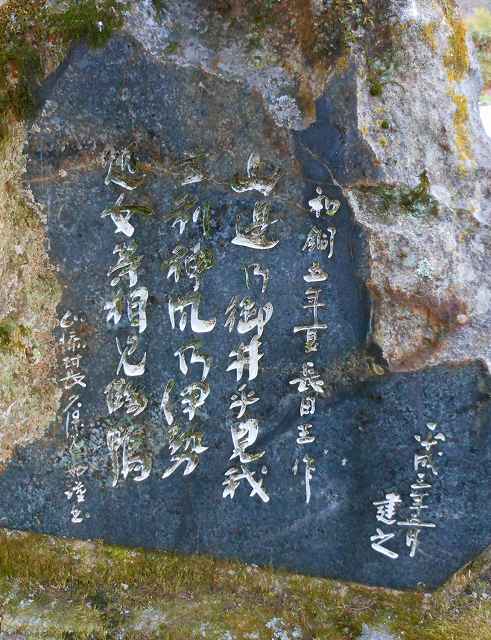 和銅五年夏 長田王作
山邊乃御井乎見我
弖利神風乃伊勢
處女等相見鶴鴨
村長 謹書
平成二年五月
建之